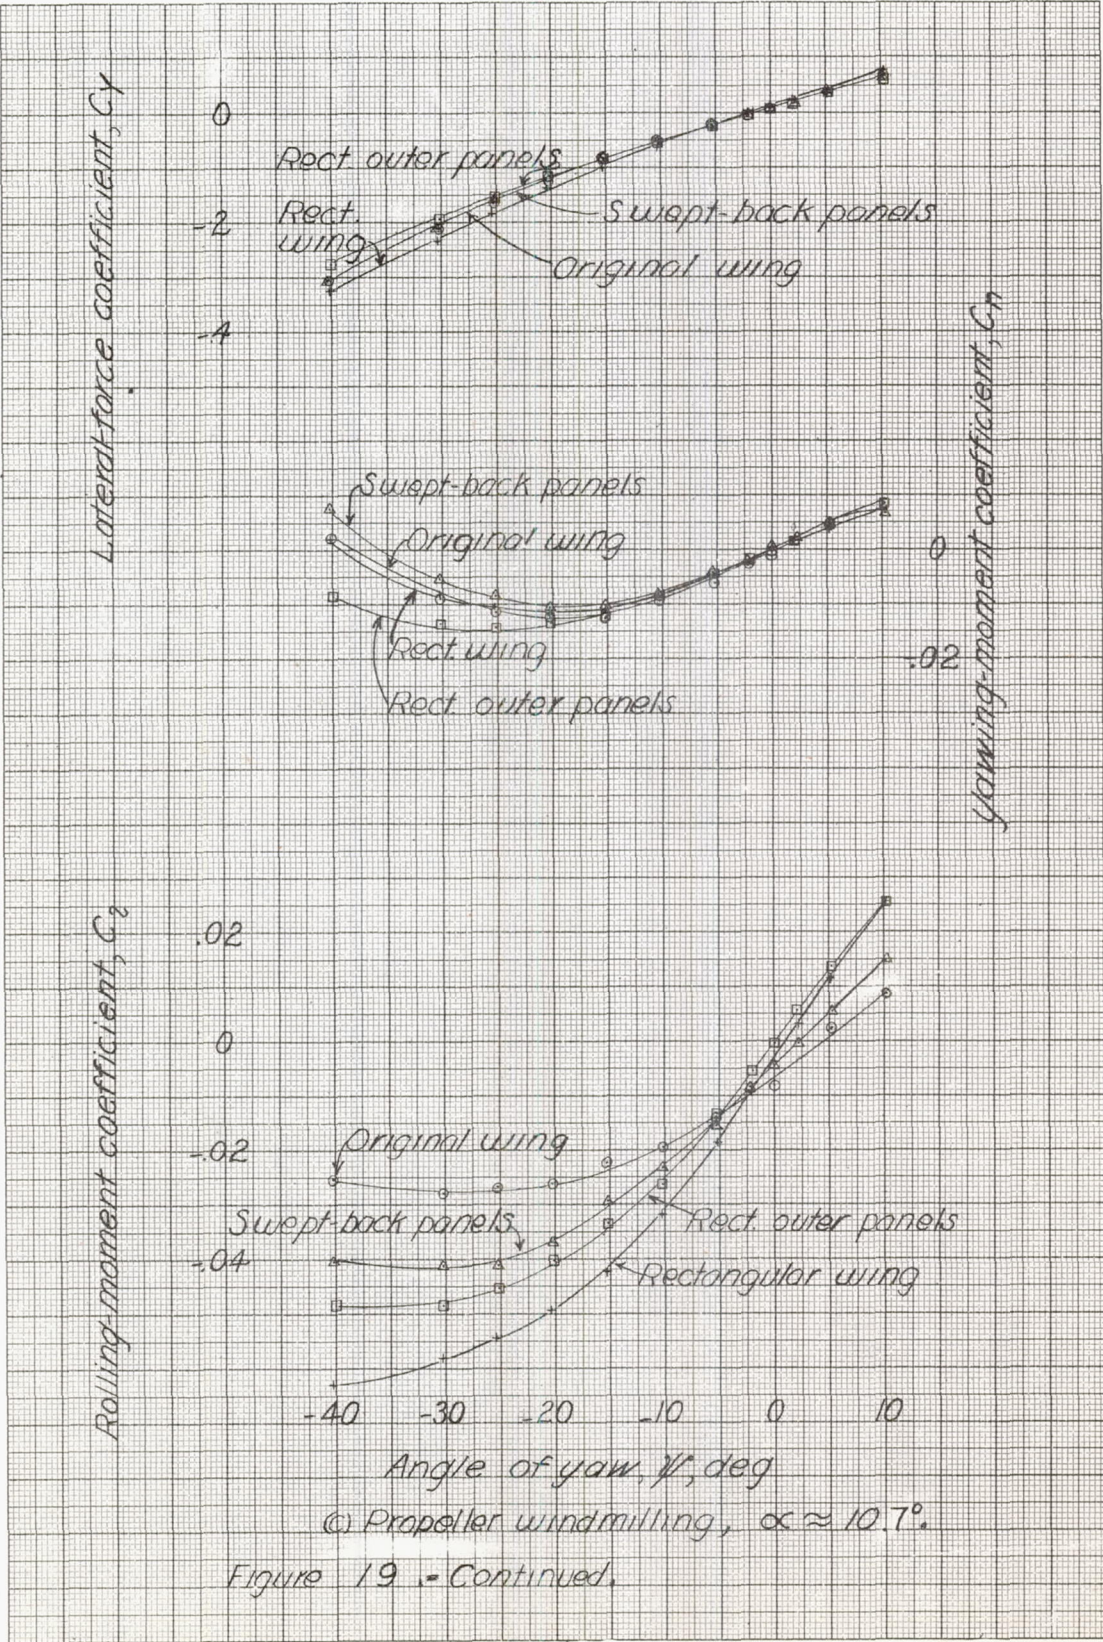 Lateral-force coefficient, Cy
0
-.2
-.4
Rect. outer panels
Rect.
wing
Swept-back panels
Original wing
Yawing-moment coefficient, Cn
0
-.02
Swept-back panels
Original wing
Rect. wing
Rect. outer panels
Rolling-moment coefficient, Cl
.02
0
-.02
-.04
Original wing
Swept-back panels
Rect. outer panels
Rectangular wing
-40 -30 -20 -10 0 10
Angle of yaw, ψ, deg
(c) Propeller windmilling, α ≈ 10.7°.
Figure 19 .- Continued.